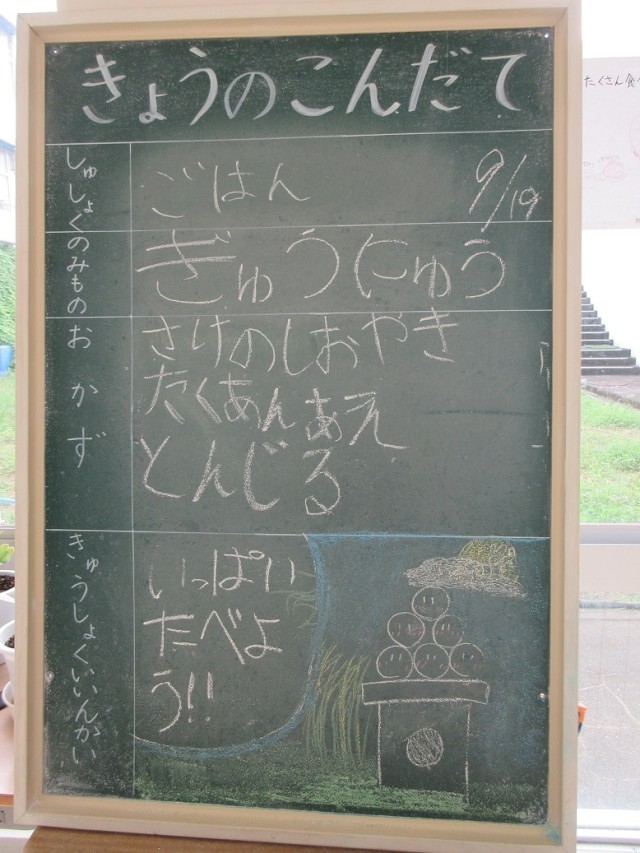 きょうのこんだて
しゅしょく
ごはん
9/19
のみもの
ぎゅうにゅう
おかず
さけのしおやき
たくあんあえ
とんじる
きゅうしょくいいんかい
いっぱい
たべよ
う!!
たくさん食べ